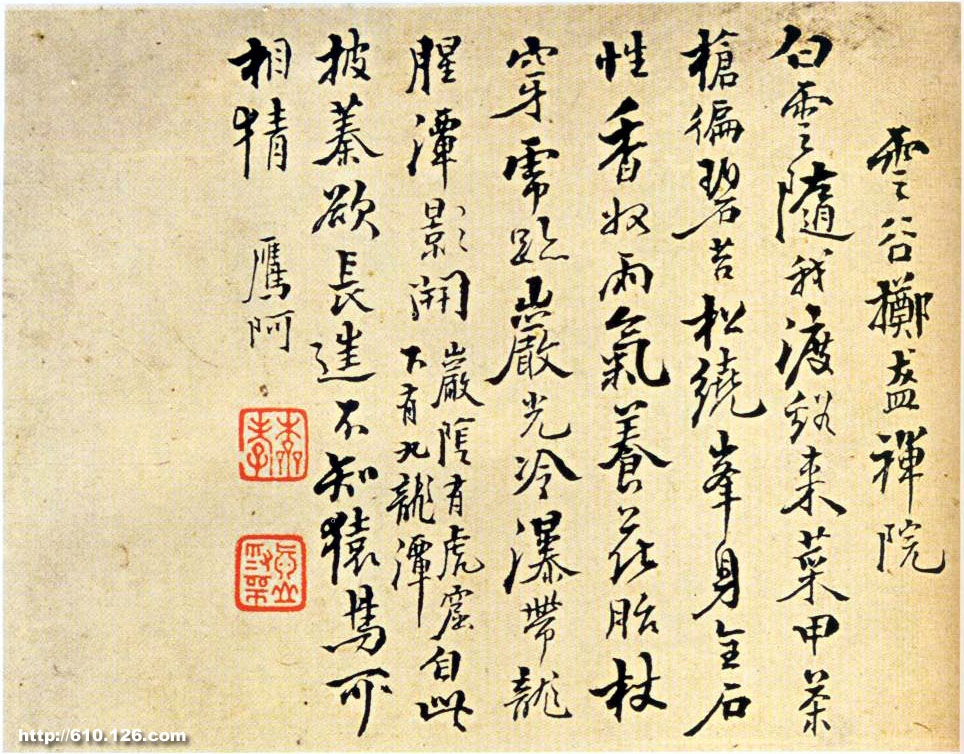 雲谷擲盋禪院
白雲隨我渡谿來菜甲茶
槍徧碧苔松繞峯身全石
性香收雨氣養花胎杖
穿虎跡巖光冷瀑帶龍
腥潭影開
巖陰有虎窟
下有九龍潭
自此
披蓁欲長往不知猿鳥可
相猜
鷹阿
http://610.126.com